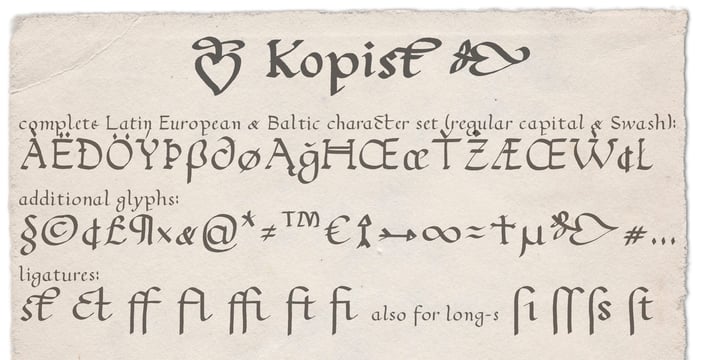 ❦ Kopist ❧
complete Latin European & Baltic character set (regular capital & Swash):
ÀËÐÖÝÞβ∂øĄğĦŒœŤŻÆŒẄđŁ
additional glyphs:
§©¢£¶×&@*≠™€↑→∞≈†µ❧#...
ligatures:
st ct ff fl ffi ft fi also for long-s ſi ſſ ſs ſt